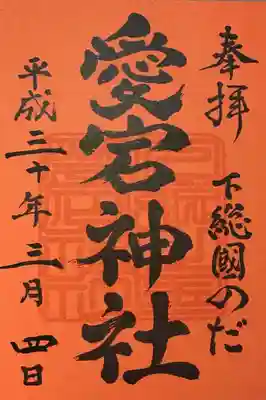 奉拝 下総國のだ
愛宕神社
平成三十年三月四日